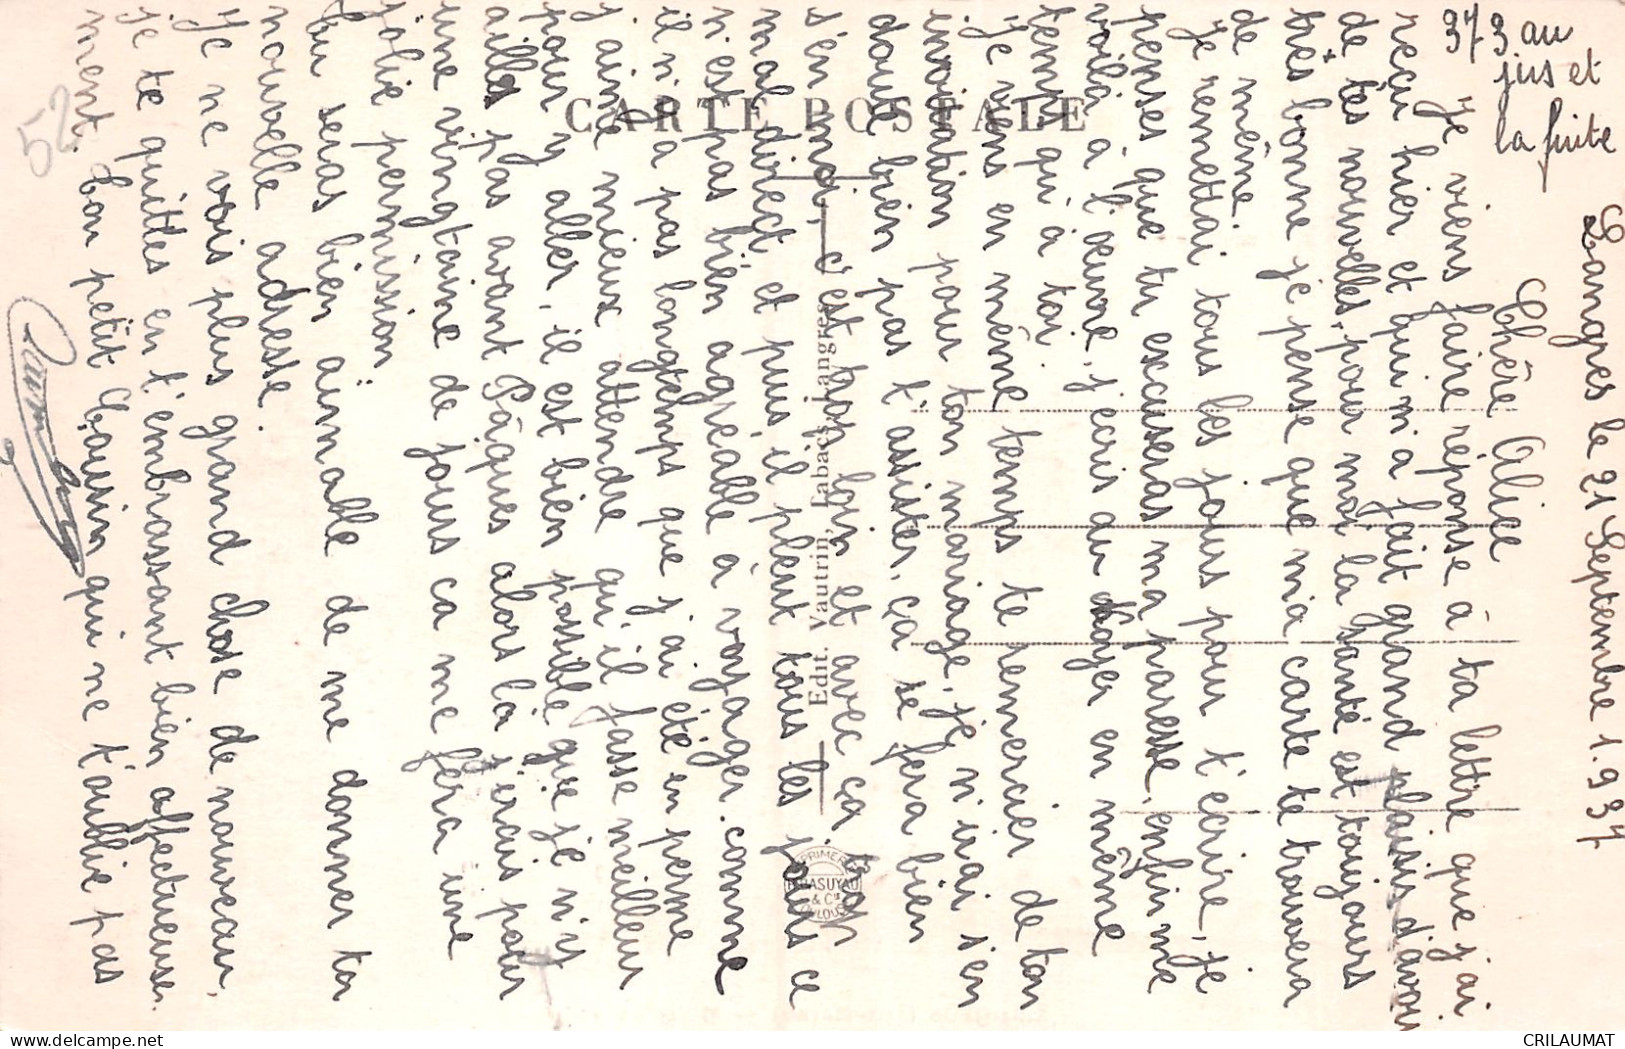 Langres le 21 Septembre 1.937
373 au
jus et
la fuite
Chère Alice
Je viens faire réponse à ta lettre que j'ai
reçu hier et qui m'a fait grand plaisir d'avoir
de tes nouvelles, pour moi la santé est toujours
très bonne je pense que ma carte te trouvera
de même.
Je remettai tous les jours pour t'écrire, je
penses que tu excuseras ma paresse, enfin me
voilà à l'œuvre, j'écris au foyer en même
temps qu'à toi.
Je viens en même temps te remercier de ton
invitation pour ton mariage, je n'irai s'en
doute bien pas t'assister, ça se fera bien
s'en moi, c'est trop loin et avec ça trop
mal direct et puis il pleut tous les jours ce
n'est pas bien agréable à voyager. comme
il n'y a pas longtemps que j'ai été en perme
j'aime mieux attendre qu'il fasse meilleur
pour y aller, il est bien possible que je n'y
aille pas avant Pâques alors là j'irais pour
une vingtaine de jours ça me fera une
jolie permission.
Tu seras bien aimable de me donner ta
nouvelle adresse.
Je ne vois plus grand chose de nouveau,
je te quittes en t'embrassant bien affectueuse-
ment. Ton petit Cousin qui ne t'oublie pas
52
CARTE POSTALE
Edit. Vautrin, Tabacs, Langres
IMPRIMERIE
LABASUYAU
& Cie
TOULOUSE
CRILAUMAT